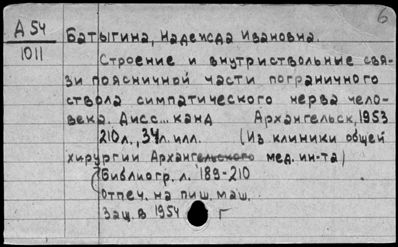 6
А 54
1011
Батыгина, Надежда Ивановна.
Строение и внутриствольные свя-
зи поясничной части пограничного
ствола симпатического нерва чело-
века. Дисс... канд Архангельск, 1953
210л., 34л. илл. (Из клиники общей
хирургии Архангельского мед. ин-та)
Библиогр. л. 189-210
Отпеч. на пиш. маш.
Защ. в 1954 г